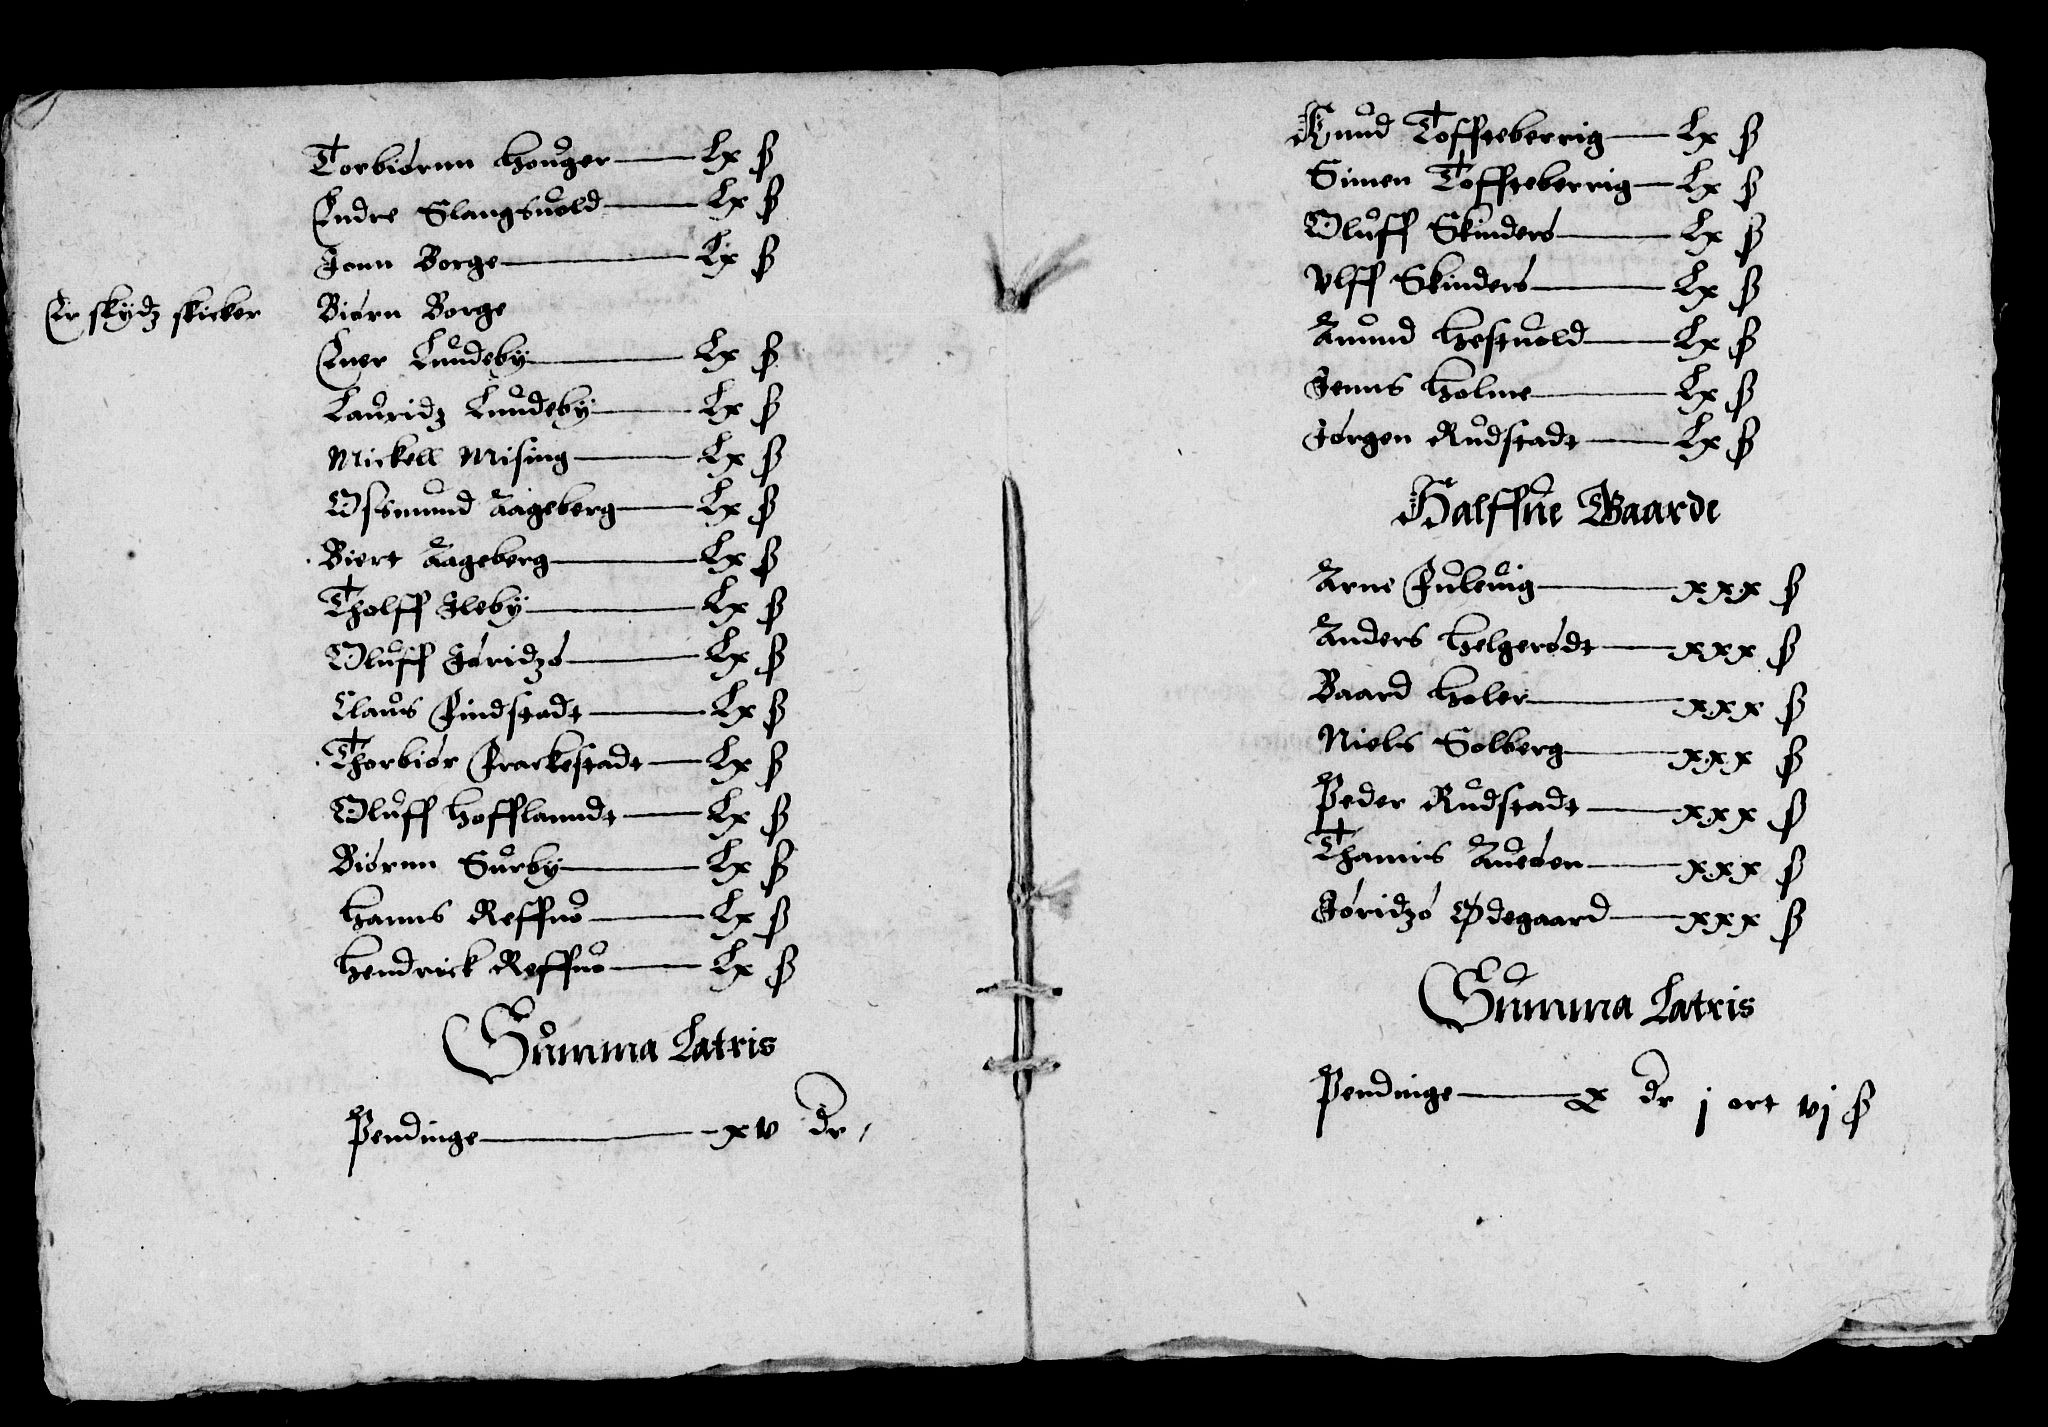 Torbiørnn Houger — Lx ß
Endre Slangsuold — Lx ß
Jonn Borge — Lx ß
Er skydz skicker Biørn Borge
Euer Lundeby — Lx ß
Lauridz Lundeby — Lx ß
Mickell Mising — Lx ß
Ossmund Aageberg — Lx ß
Biert Aageberg — Lx ß
Tholff Jleby — Lx ß
Oluff Jøridzø — Lx ß
Claus Findstadt — Lx ß
Thorbiør Frackestadt — Lx ß
Oluff Hofflanndt — Lx ß
Biørnn Surby — Lx ß
Hanns Reffnø — Lx ß
Hendrick Reffnø — Lx ß
Summa Latris
Pendinge — xv dr
Knud Toffteberrig — Lx ß
Simen Toffteberrig — Lx ß
Oluff Skinderø — Lx ß
Vlff Skinderø — Lx ß
Amund Hestuold — Lx ß
Jenns Holme — Lx ß
Jørgen Rudstadt — Lx ß
Halffue Gaarde
Arne Fuleuig — xxx ß
Anders Helgerødt — xxx ß
Baard Holer — xxx ß
Niels Solberg — xxx ß
Peder Rudstadt — xxx ß
Thamis Auesen — xxx ß
Jøridzø Ødegaard — xxx ß
Summa Latris
Pendinge — x dr j ort vj ß